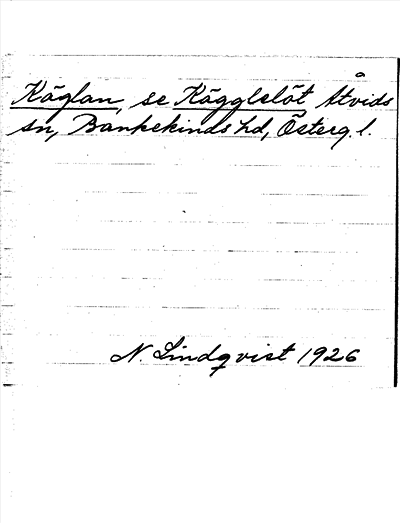 Käglan, se Kägglelöt Åtvids
sn, Bankekinds hd, Österg. l.
N. Lindqvist 1926